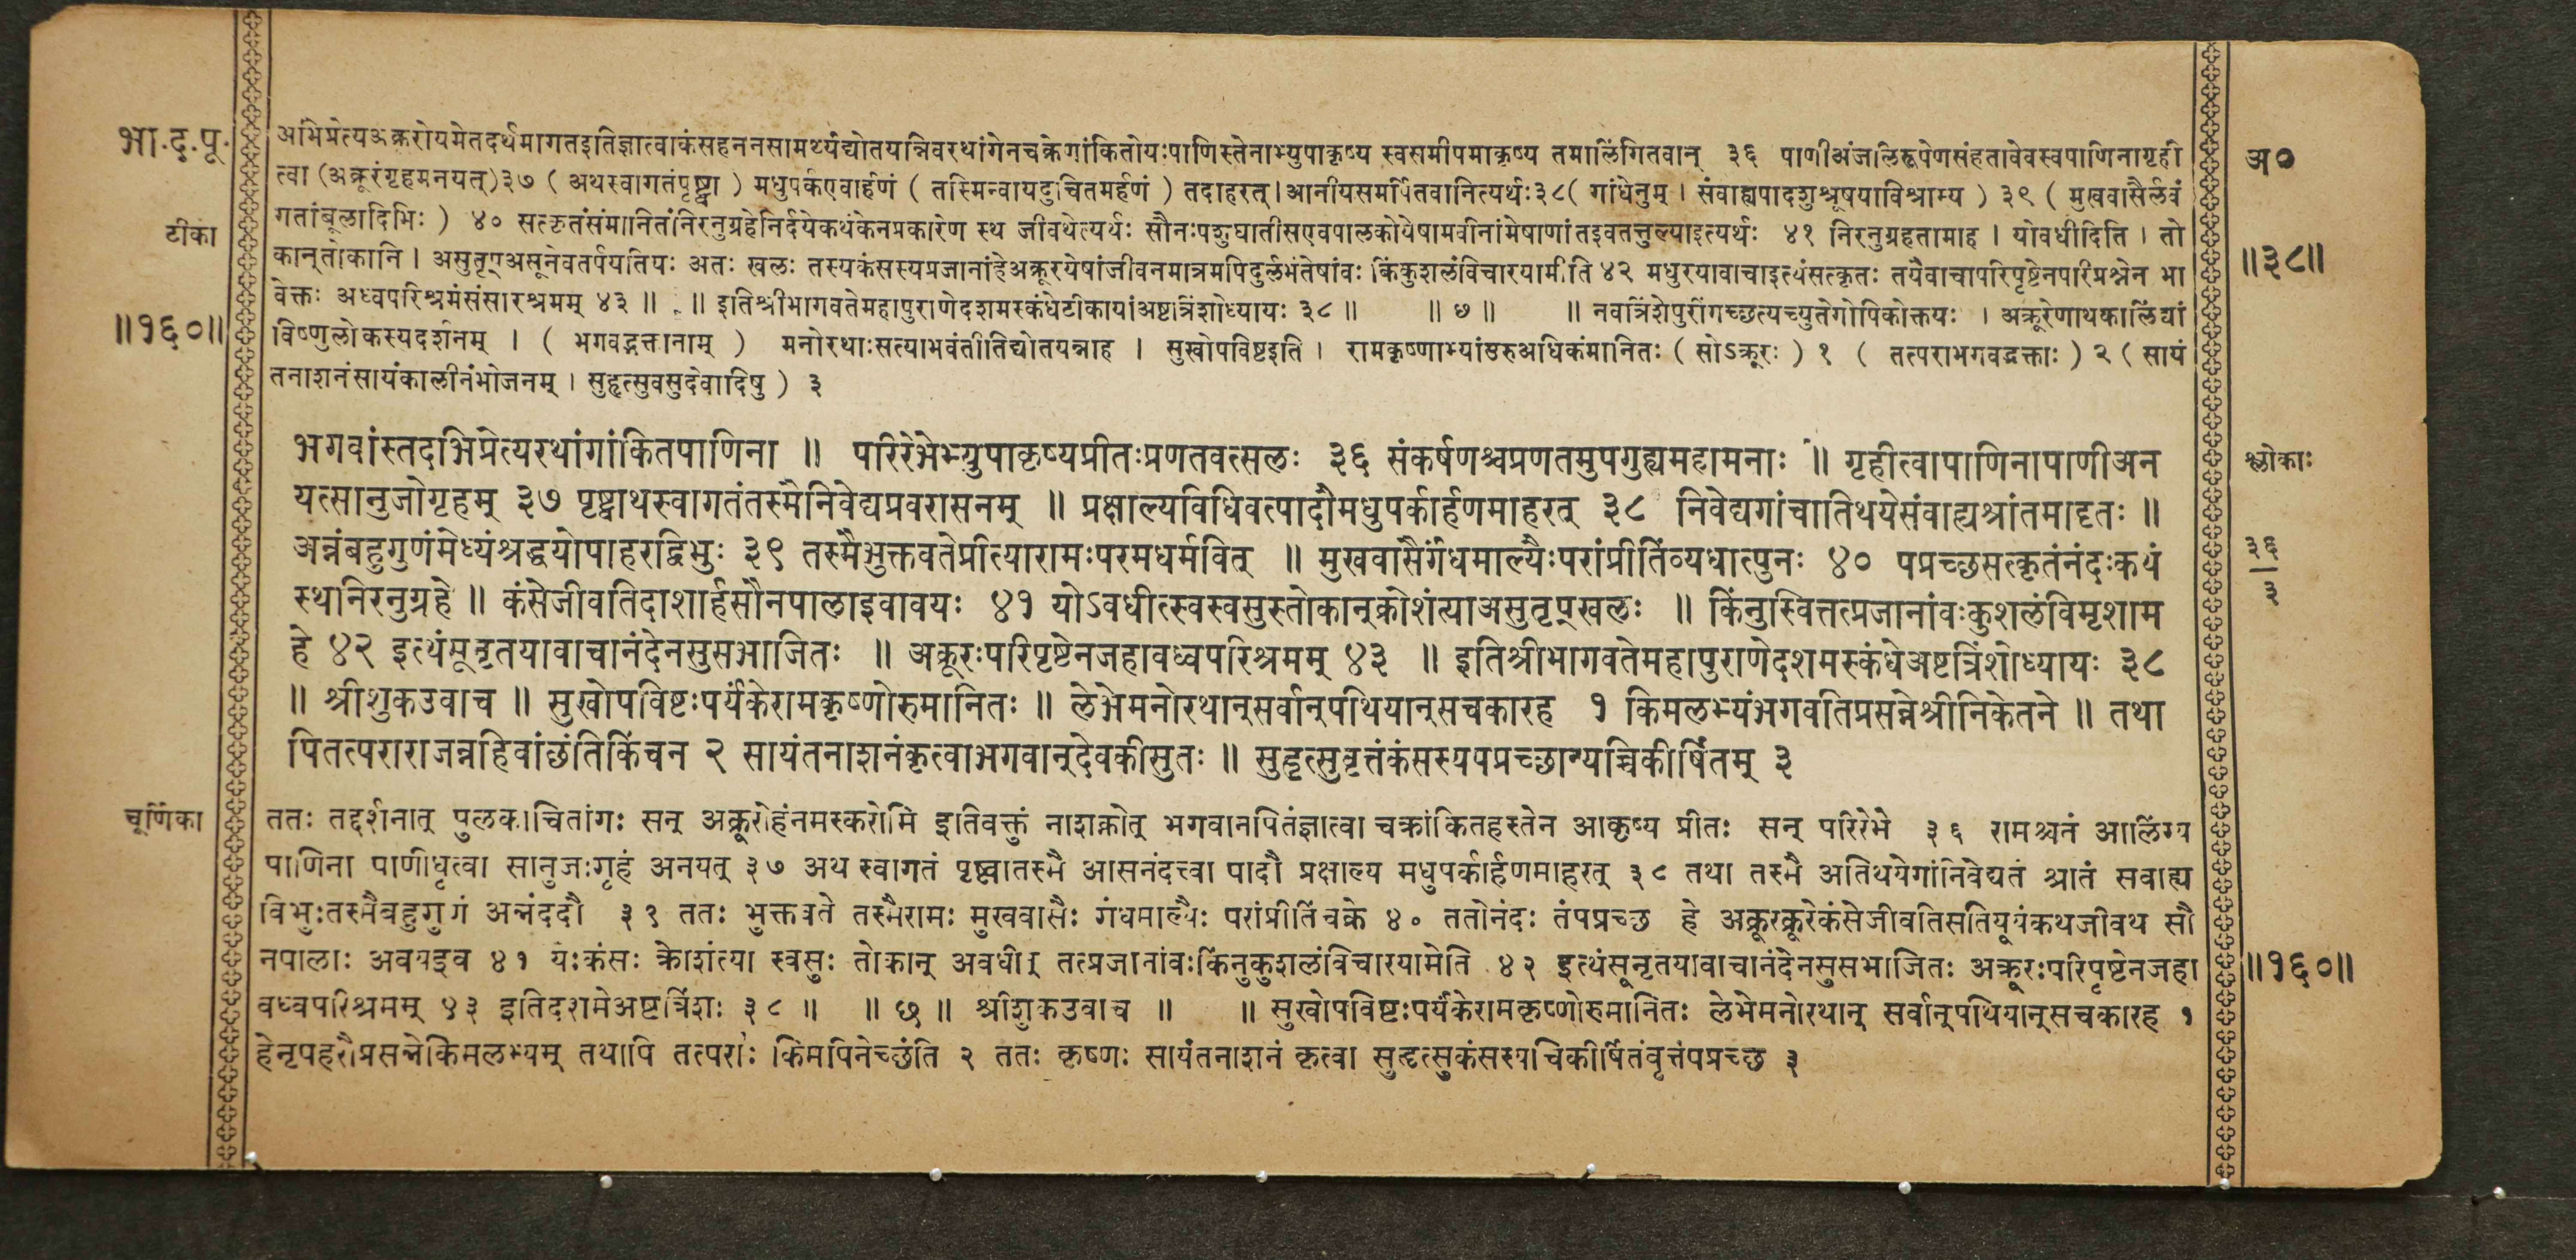 भा.द.पू.
अभिप्रेत्यअक्रूरोयमेतदर्थमागतइतिज्ञात्वाकंसहननसामर्थ्यंद्योतयन्निवरथांगेनचक्रेणांकितोयःपाणिस्तेनाभ्युपाकृष्य स्वसमीपमाकृष्य तमालिंगितवान् ३६ पाणीअंजलिरूपेणसंहतावेवस्वपाणिनागृही
अ०
त्वा (अक्रूरंगृहमनयत्)३७ ( अथस्वागतंपृष्ट्वा ) मधुपर्कएवार्हणं ( तस्मिन्वायदुचितमर्हणं ) तदाहरत्।आनीयसमर्पितवानित्यर्थः३८( गांधेनुम् । संवाह्यपादशुश्रूषयाविश्राम्य ) ३९ ( मुखवासैर्लवं
टीका
गतांबूलादिभिः ) ४० सत्कृतंसंमानितंनिरनुग्रहेनिर्दयेकथंकेनप्रकारेण स्थ जीवथेत्यर्थः सौनःपशुघातीसएवपालकोयेषामवीनांमेषाणांतइवतत्तुल्याइत्यर्थः ४१ निरनुग्रहतामाह । योवधीदिति । तो
॥३८॥
कान्तोकानि । असुतृप्असूनेवतर्पयतियः अतः खलः तस्यकंसस्यप्रजानांहेअक्रूरयेषांजीवनमात्रमपिदुर्लभंतेषांवः किंकुशलंविचारयामीति ४२ मधुरयावाचाइत्थंसत्कृतः तयैवाचापरिपृष्टेनपरिप्रश्नेन भा
॥१६०॥
वेक्तः अध्वपरिश्रमंसंसारश्रमम् ४३ ॥ ॥ इतिश्रीभागवतेमहापुराणेदशमस्कंधेटीकायांअष्टत्रिंशोध्यायः ३८ ॥ ॥ ७ ॥ ॥ नवत्रिंशेपुरींगच्छत्यच्युतेगोपिकोक्तयः । अक्रूरेणाथकालिंद्यां
विष्णुलोकस्यदर्शनम् । ( भगवद्भक्तानाम् ) मनोरथाःसत्याभवंतीतिद्योतयन्नाह । सुखोपविष्टइति । रामकृष्णाभ्यांउरुअधिकंमानितः ( सोऽक्रूरः ) १ ( तत्पराभगवद्भक्ताः ) २ ( सायं
तनाशनंसायंकालीनंभोजनम् । सुहृत्सुवसुदेवादिषु ) ३
भगवांस्तदाभिप्रेत्यरथांगांकितपाणिना ॥ परिरेभेभ्युपाकृष्यप्रीतःप्रणतवत्सलः ३६ संकर्षणश्चप्रणतमुपगुह्यमहामनाः ॥ गृहीत्वापाणिनापाणीअन
श्लोकाः
यत्सानुजोगृहम् ३७ पृष्ट्वाथस्वागतंतस्मैनिवेद्यप्रवरासनम् ॥ प्रक्षाल्यविधिवत्पादौमधुपर्कार्हणमाहरत् ३८ निवेद्यगांचातिथयेसंवाह्यश्रांतमादृतः ॥
अन्नंबहुगुणंमेध्यंश्रद्धयोपाहरद्विभुः ३९ तस्मैभुक्तवतेप्रीत्यारामःपरमधर्मवित् ॥ मुखवासैर्गंधमाल्यैःपरांप्रीतिंव्यधात्पुनः ४० पप्रच्छसत्कृतंनंदःकथं
३६
स्थनिरनुग्रहे ॥ कंसेजीवतिदाशार्हसौनपालाइवावयः ४१ योऽवधीत्स्वस्वसुस्तोकान्क्रोशंत्याअसुतृप्खलः ॥ किंनुस्वित्तत्प्रजानांवःकुशलंविमृशाम
३
हे ४२ इत्थंसूनृतयावाचानंदेनसुसभाजितः ॥ अक्रूरःपरिपृष्टेनजहावध्वपरिश्रमम् ४३ ॥ इतिश्रीभागवतेमहापुराणेदशमस्कंधेअष्टत्रिंशोध्यायः ३८
॥ श्रीशुकउवाच ॥ सुखोपविष्टःपर्यंकेरामकृष्णोरुमानितः ॥ लेभेमनोरथान्सर्वान्पथियान्सचकारह १ किमलभ्यंभगवतिप्रसन्नेश्रीनिकेतने ॥ तथा
पितत्परराराजन्नहिवांछंतिकिंचन २ सायंतनाशनंकृत्वाभगवान्देवकीसुतः ॥ सुहृत्सुवृत्तंकंसस्यपप्रच्छान्यच्चिकीर्षितम् ३
चूर्णिका
ततः तद्दर्शनात् पुलकाचितांगः सन् अक्रूरोहंनमस्करोमि इतिवक्तुं नाशक्नोत् भगवानपितंज्ञात्वा चक्रांकितहस्तेन आकृष्य प्रीतः सन् परिरेभे ३६ रामश्चतं आलिंग्य
पाणिना पाणीधृत्वा सानुजःगृहं अनयत् ३७ अथ स्वागतं पृष्ट्वातस्मै आसनंदत्त्वा पादौ प्रक्षाल्य मधुपर्कार्हणमाहरत् ३८ तथा तस्मै अतिथयेगांनिवेद्यतं श्रातं सवाह्य
विभुःतस्मैबहुगुणं अन्नंददौ ३९ ततः भुक्तवते तस्मैरामः मुखवासैः गंधमाल्यैः परांप्रीतिंचक्रे ४० ततोनंदः तंपप्रच्छ हे अक्रूरक्रूरेकंसेजीवतिसतियूयंकथजीवथ सौ
नपालाः अवयइव ४१ यःकंसः क्रोशंत्या स्वसुः तोकान् अवधीत् तत्प्रजानांवःकिंनुकुशलंविचारयामेति ४२ इत्थंसूनृतयावाचानंदेनसुसभाजितः अक्रूरःपरिपृष्टेनजहा
॥१६०॥
वध्वपरिश्रमम् ४३ इतिदशमेअष्टत्रिंशः ३८ ॥ ॥ छ ॥ श्रीशुकउवाच ॥ ॥ सुखोपविष्टःपर्यंकेरामकृष्णोरुमानितः लेभेमनोरथान् सर्वान्पथियान्सचकारह १
हेनृपहरौप्रसन्नेकिमलभ्यम् तथापि तत्पराः किमपिनेच्छंति २ ततः कृष्णः सायंतनाशनं कृत्वा सुहृत्सुकंसस्यचिकीर्षितंवृत्तंपप्रच्छ ३